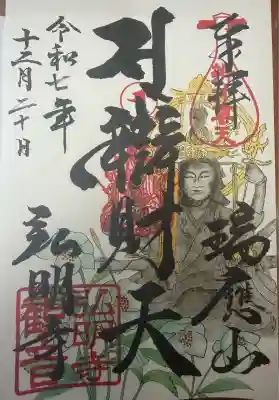 奉拝
瑞應山
辯財天
弘明寺
令和七年
十二月二十日
弘明寺
觀音